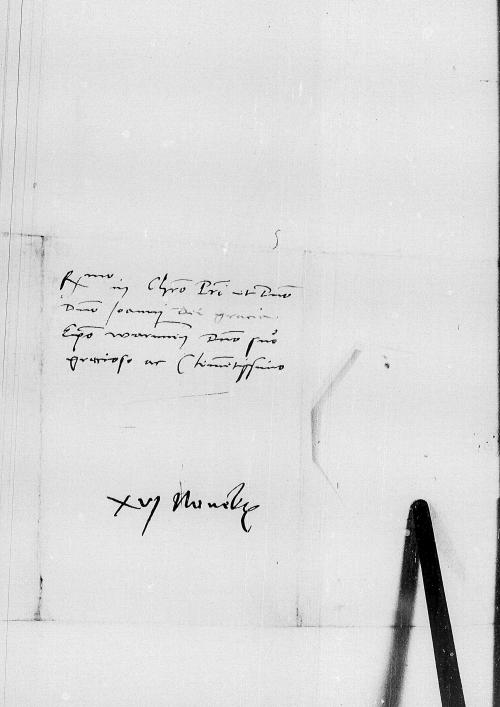 Rmo in Chro Pri et Dno
Dno Joanni Dei gracia
Epo warmien Dno suo
gracioso ac Clementissimo
XVJ Novēb